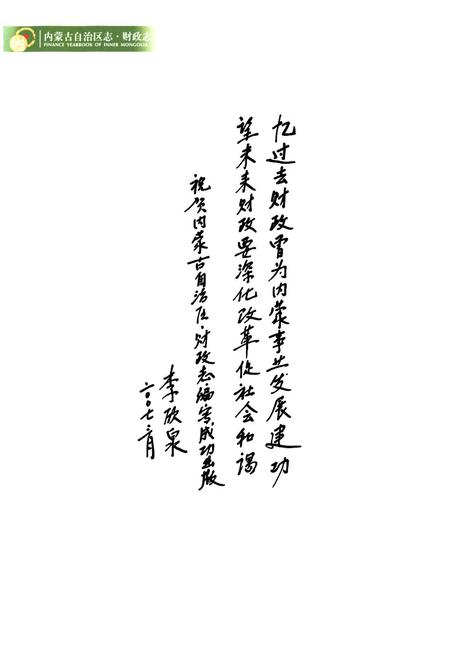 内蒙古自治区志·财政志
FINANCE YEARBOOK OF INNER MONGOLIA
忆过去财政曾为内蒙事业发展建功
望未来财政要深化改革促社会和谐
祝贺内蒙古自治区·财政志编写成功出版
李欣泉
二〇〇七·二月